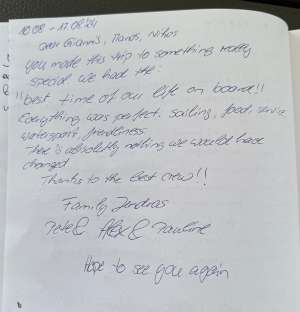 10.08 - 17.08.24
Dear Giannis, Thanos, Nikos
You made this trip to something really
special we had the
"best time of our life on board"!!
Everything was perfect. sailing, food, service
watersport, friendliness
There is absolutely nothing we would have
changed.
Thanks to the best crew!!
Family
& Alex & Pauline
Hope to see you again